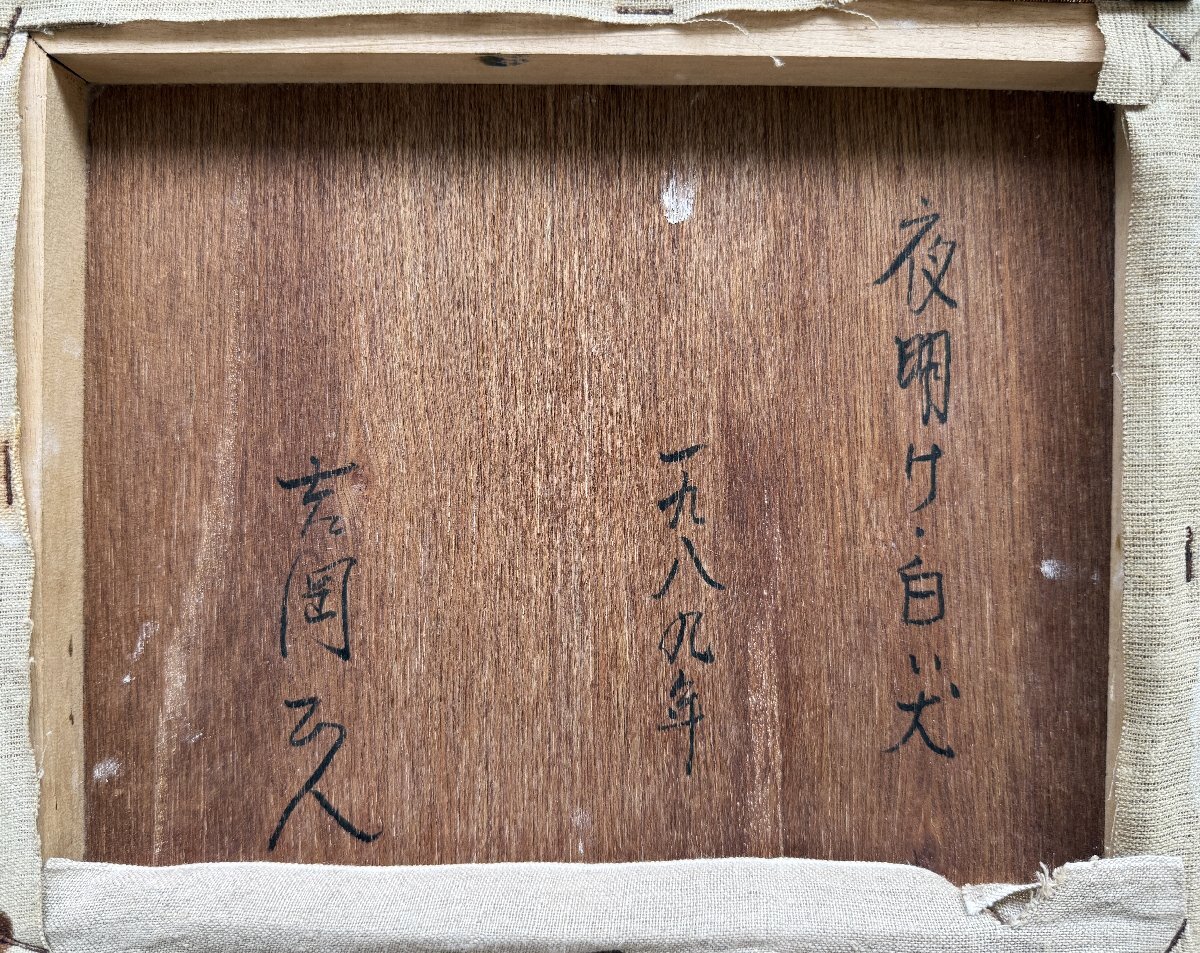 夜明け・白い犬
一九八九年
吉岡正人